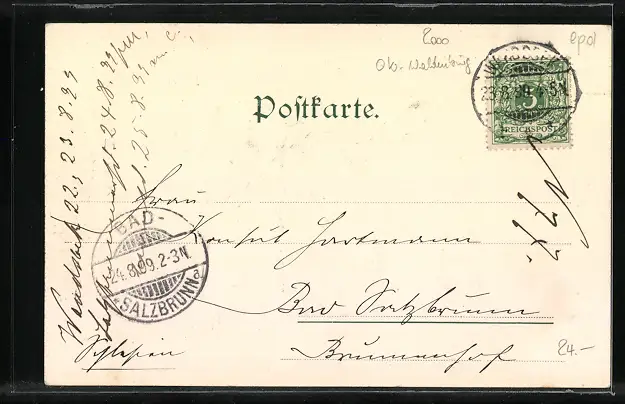 2000
epol
Ob. Waldenburg
23.8.99. 4-5N
5
REICHSPOST
Postkarte.
Frau
Konsul Hartmann
Bad Salzbrunn
Brunnenhof
Schlesien
BAD-
24.8.99.2-3N.
*SALZBRUNN a
24.-
Wandsbek 22., 23.8.99
24.8.99
25.8.99